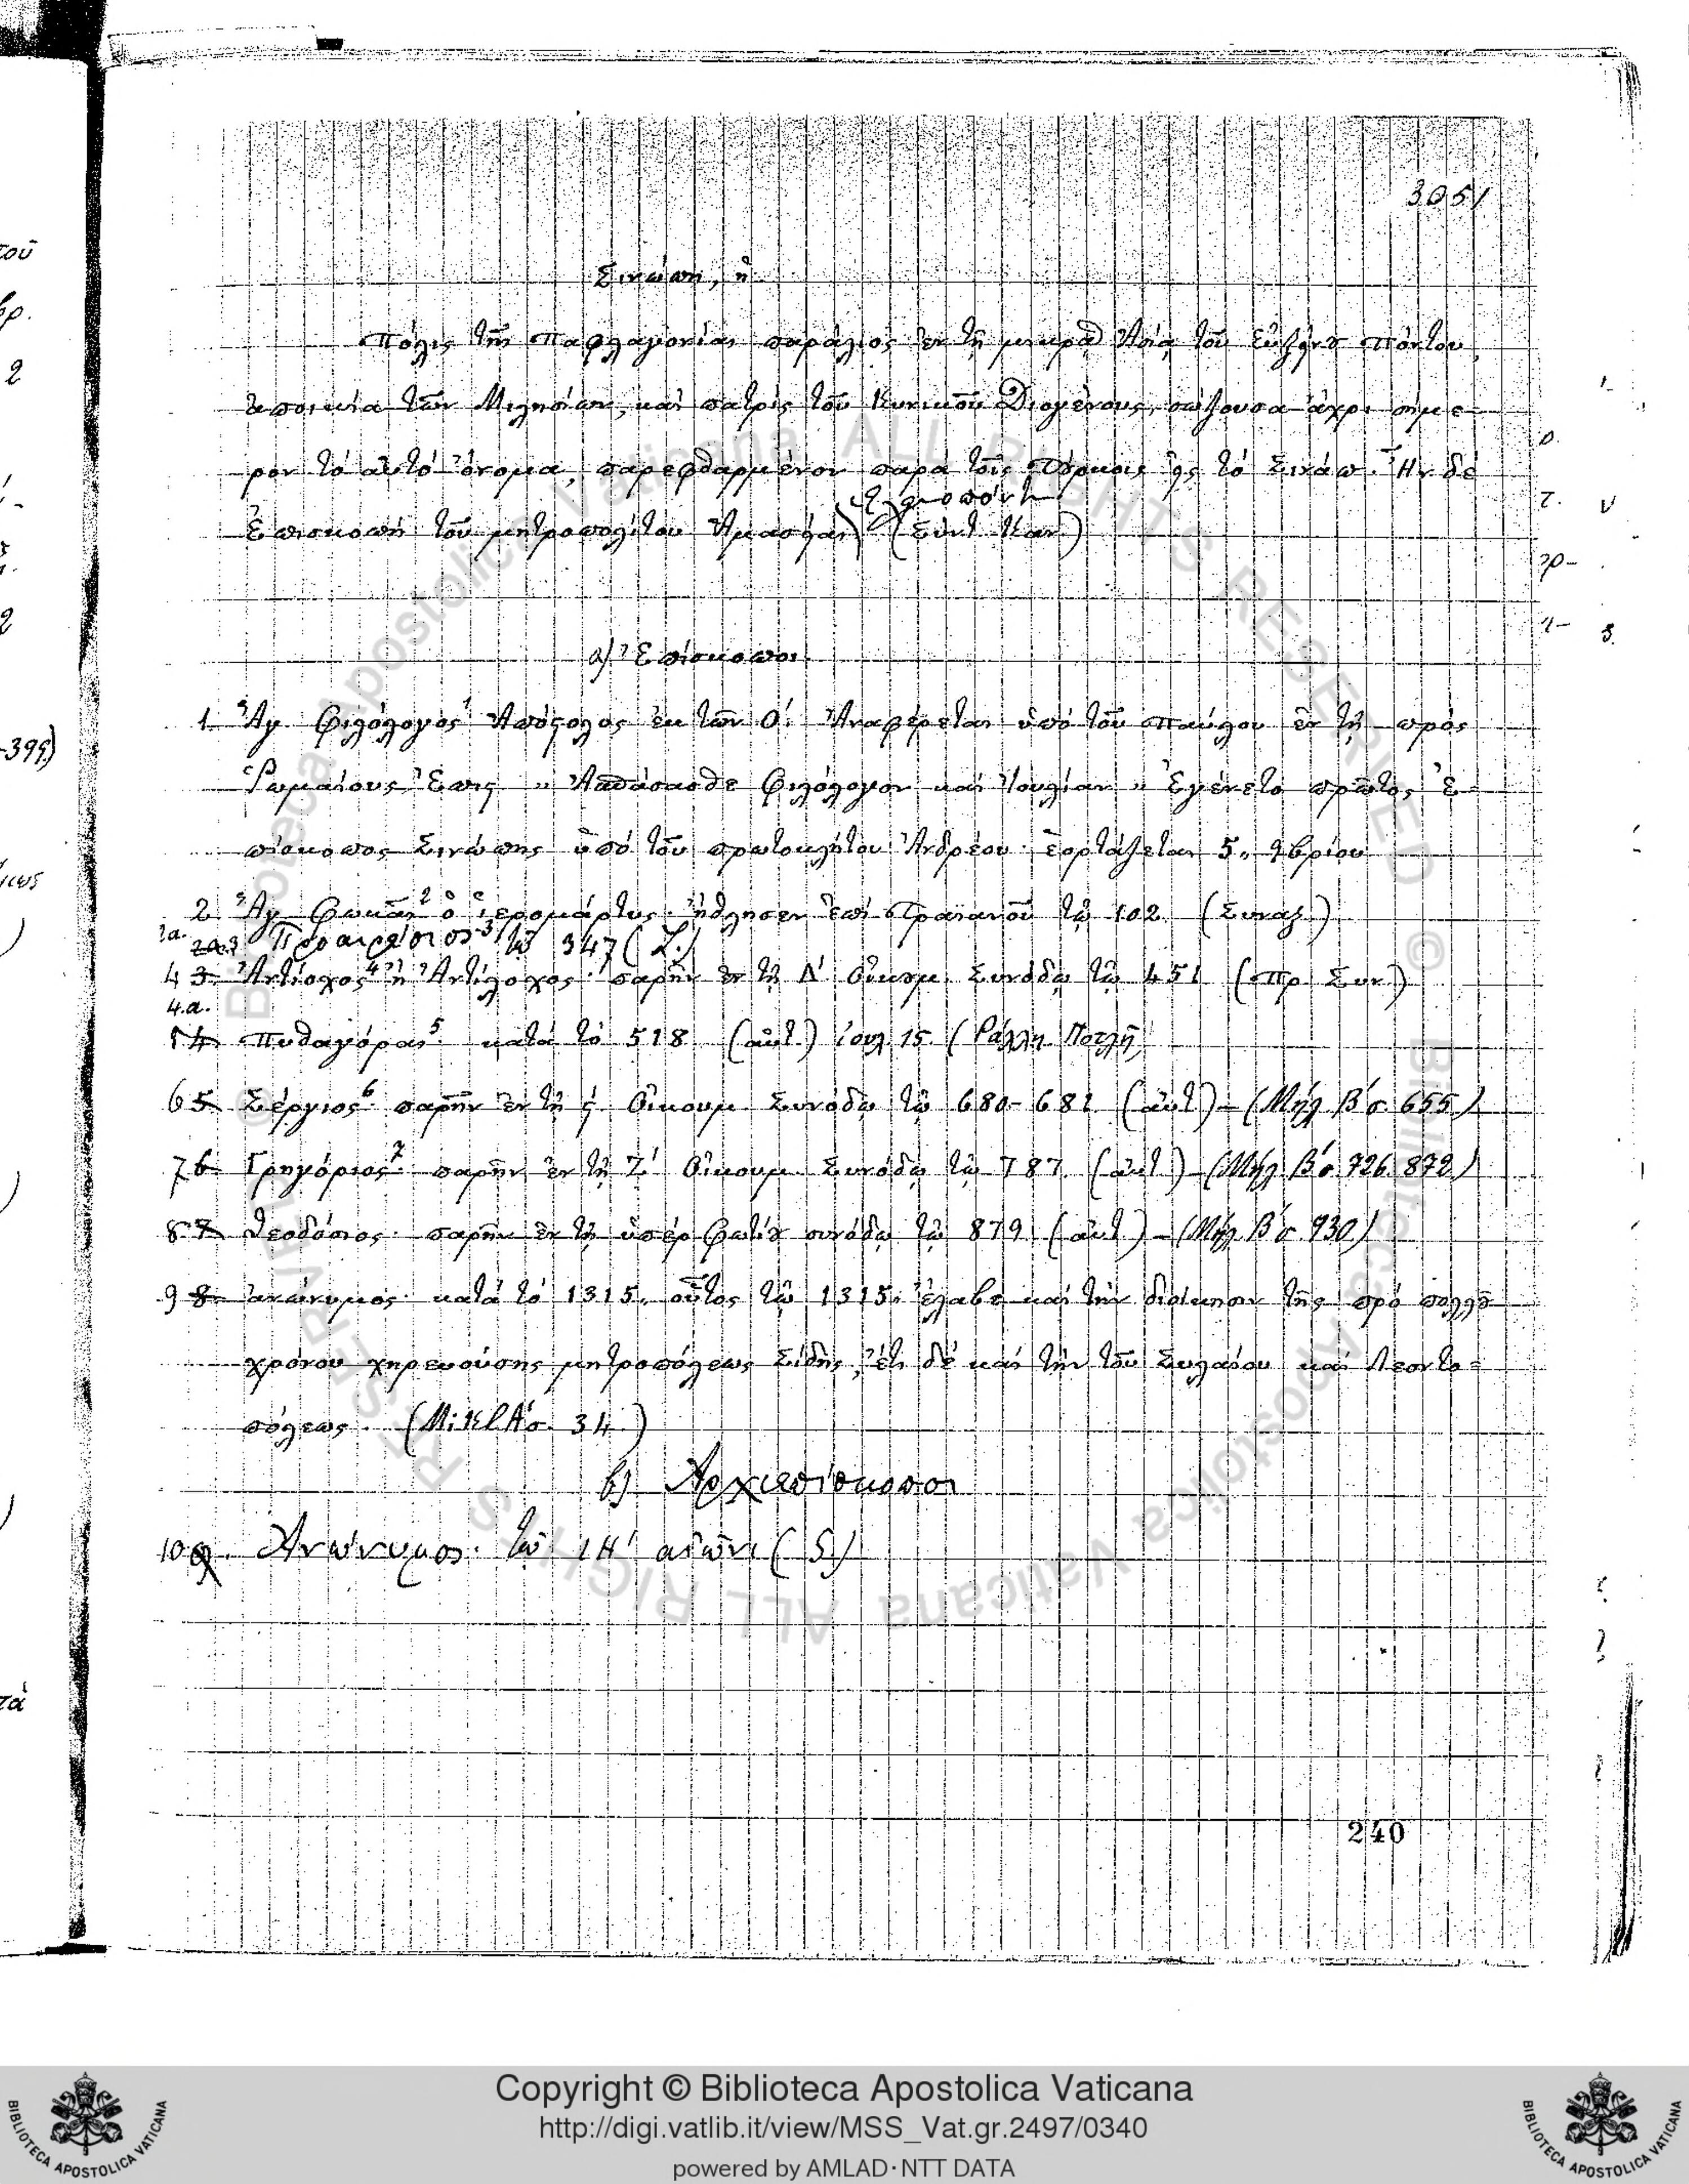 3051
Σινώπη, ἡ
Πόλις τῆς Παφλαγονίας παράλιος ἐν τῇ μικρᾷ Ἀσίᾳ τοῦ Εὐξείνου Πόντου,
ἀποικία τῶν Μιλησίων, καί πατρίς τοῦ Κυνικοῦ Διογένους, σώζουσα ἄχρι σήμε-
ρον τό αὐτό ὄνομα, παρεφθαρμένον παρά τοῖς Τούρκοις εἰς τό Σινάπ. Ἦν δέ
Ἑλενοπόντου
Ἐπισκοπή τοῦ μητροπολίτου Ἀμασείας (Σύντ. Καν.)
α) Ἐπίσκοποι.
1 Ἅγ. Φιλόλογος¹ Ἀπόστολος ἐκ τῶν Ο΄. Ἀναφέρεται ὑπό τοῦ Παύλου ἐν τῇ πρός
Ῥωμαίους Ἐπις. „ Ἀσπάσασθε Φιλόλογον καί Ἰουλίαν „ Ἐγένετο πρῶτος Ἐ-
πίσκοπος Σινώπης ὑπό του πρωτοκλήτου Ἀνδρέου· ἑορτάζεται 5. 9βρίου
2. Ἅγ. Φωκᾶς² ὁ ἱερομάρτυς· ἤθλησεν ἐπί Τραϊανοῦ τῷ 102 (Συναξ.)
2α. 3 Προαιρέσιος³ τῷ 347 (Z.)
4 3. Ἀντίοχος⁴ ἤ Ἀντίλοχος· παρῆν ἐν τῇ Δ΄ Οἰκουμ. Συνόδῳ τῷ 451 (Πρ. Συν.)
4.α.
5 4. Πυθαγόρας⁵ κατά τό 518 (αὐτ.) ἰουλ. 15. (Ράλλη Ποτλῆ)
6 5 Σέργιος⁶· παρῆν ἐν τῇ ς΄ Οἰκουμ. Συνόδῳ τῷ 680-681 (αὐτ.) - (Μήλ. Β΄ σ. 655)
7 6 Γρηγόριος⁷· παρῆν ἐν τῇ Ζ΄ Οἰκουμ. Συνόδῳ τῷ 787 (αὐτ.) - (Μήλ. Β΄ σ. 726. 872)
8. 7 Θεοδόσιος· παρῆν ἐν τῇ ὑπέρ Φωτίου συνόδῳ τῷ 879 (αὐτ.) - (Μήλ. Β΄ σ. 930)
9 8 ἀνώνυμος· κατά τό 1315. οὗτος τῷ 1315. ἔλαβε καί τήν διοίκησιν τῆς πρό πολλοῦ
χρόνου χηρευούσης μητροπόλεως Σίδης, ἔτι δέ καί τήν τοῦ Συλαίου καί Λεοντο-
πόλεως. (Mikl Α΄ σ. 34.)
β) Ἀρχιεπίσκοποι
10 9. Ἀνώνυμος· τῷ ΙΗ΄ αἰῶνι (S.)
240
Copyright © Biblioteca Apostolica Vaticana
http://digi.vatlib.it/view/MSS_Vat.gr.2497/0340
powered by AMLAD·NTT DATA